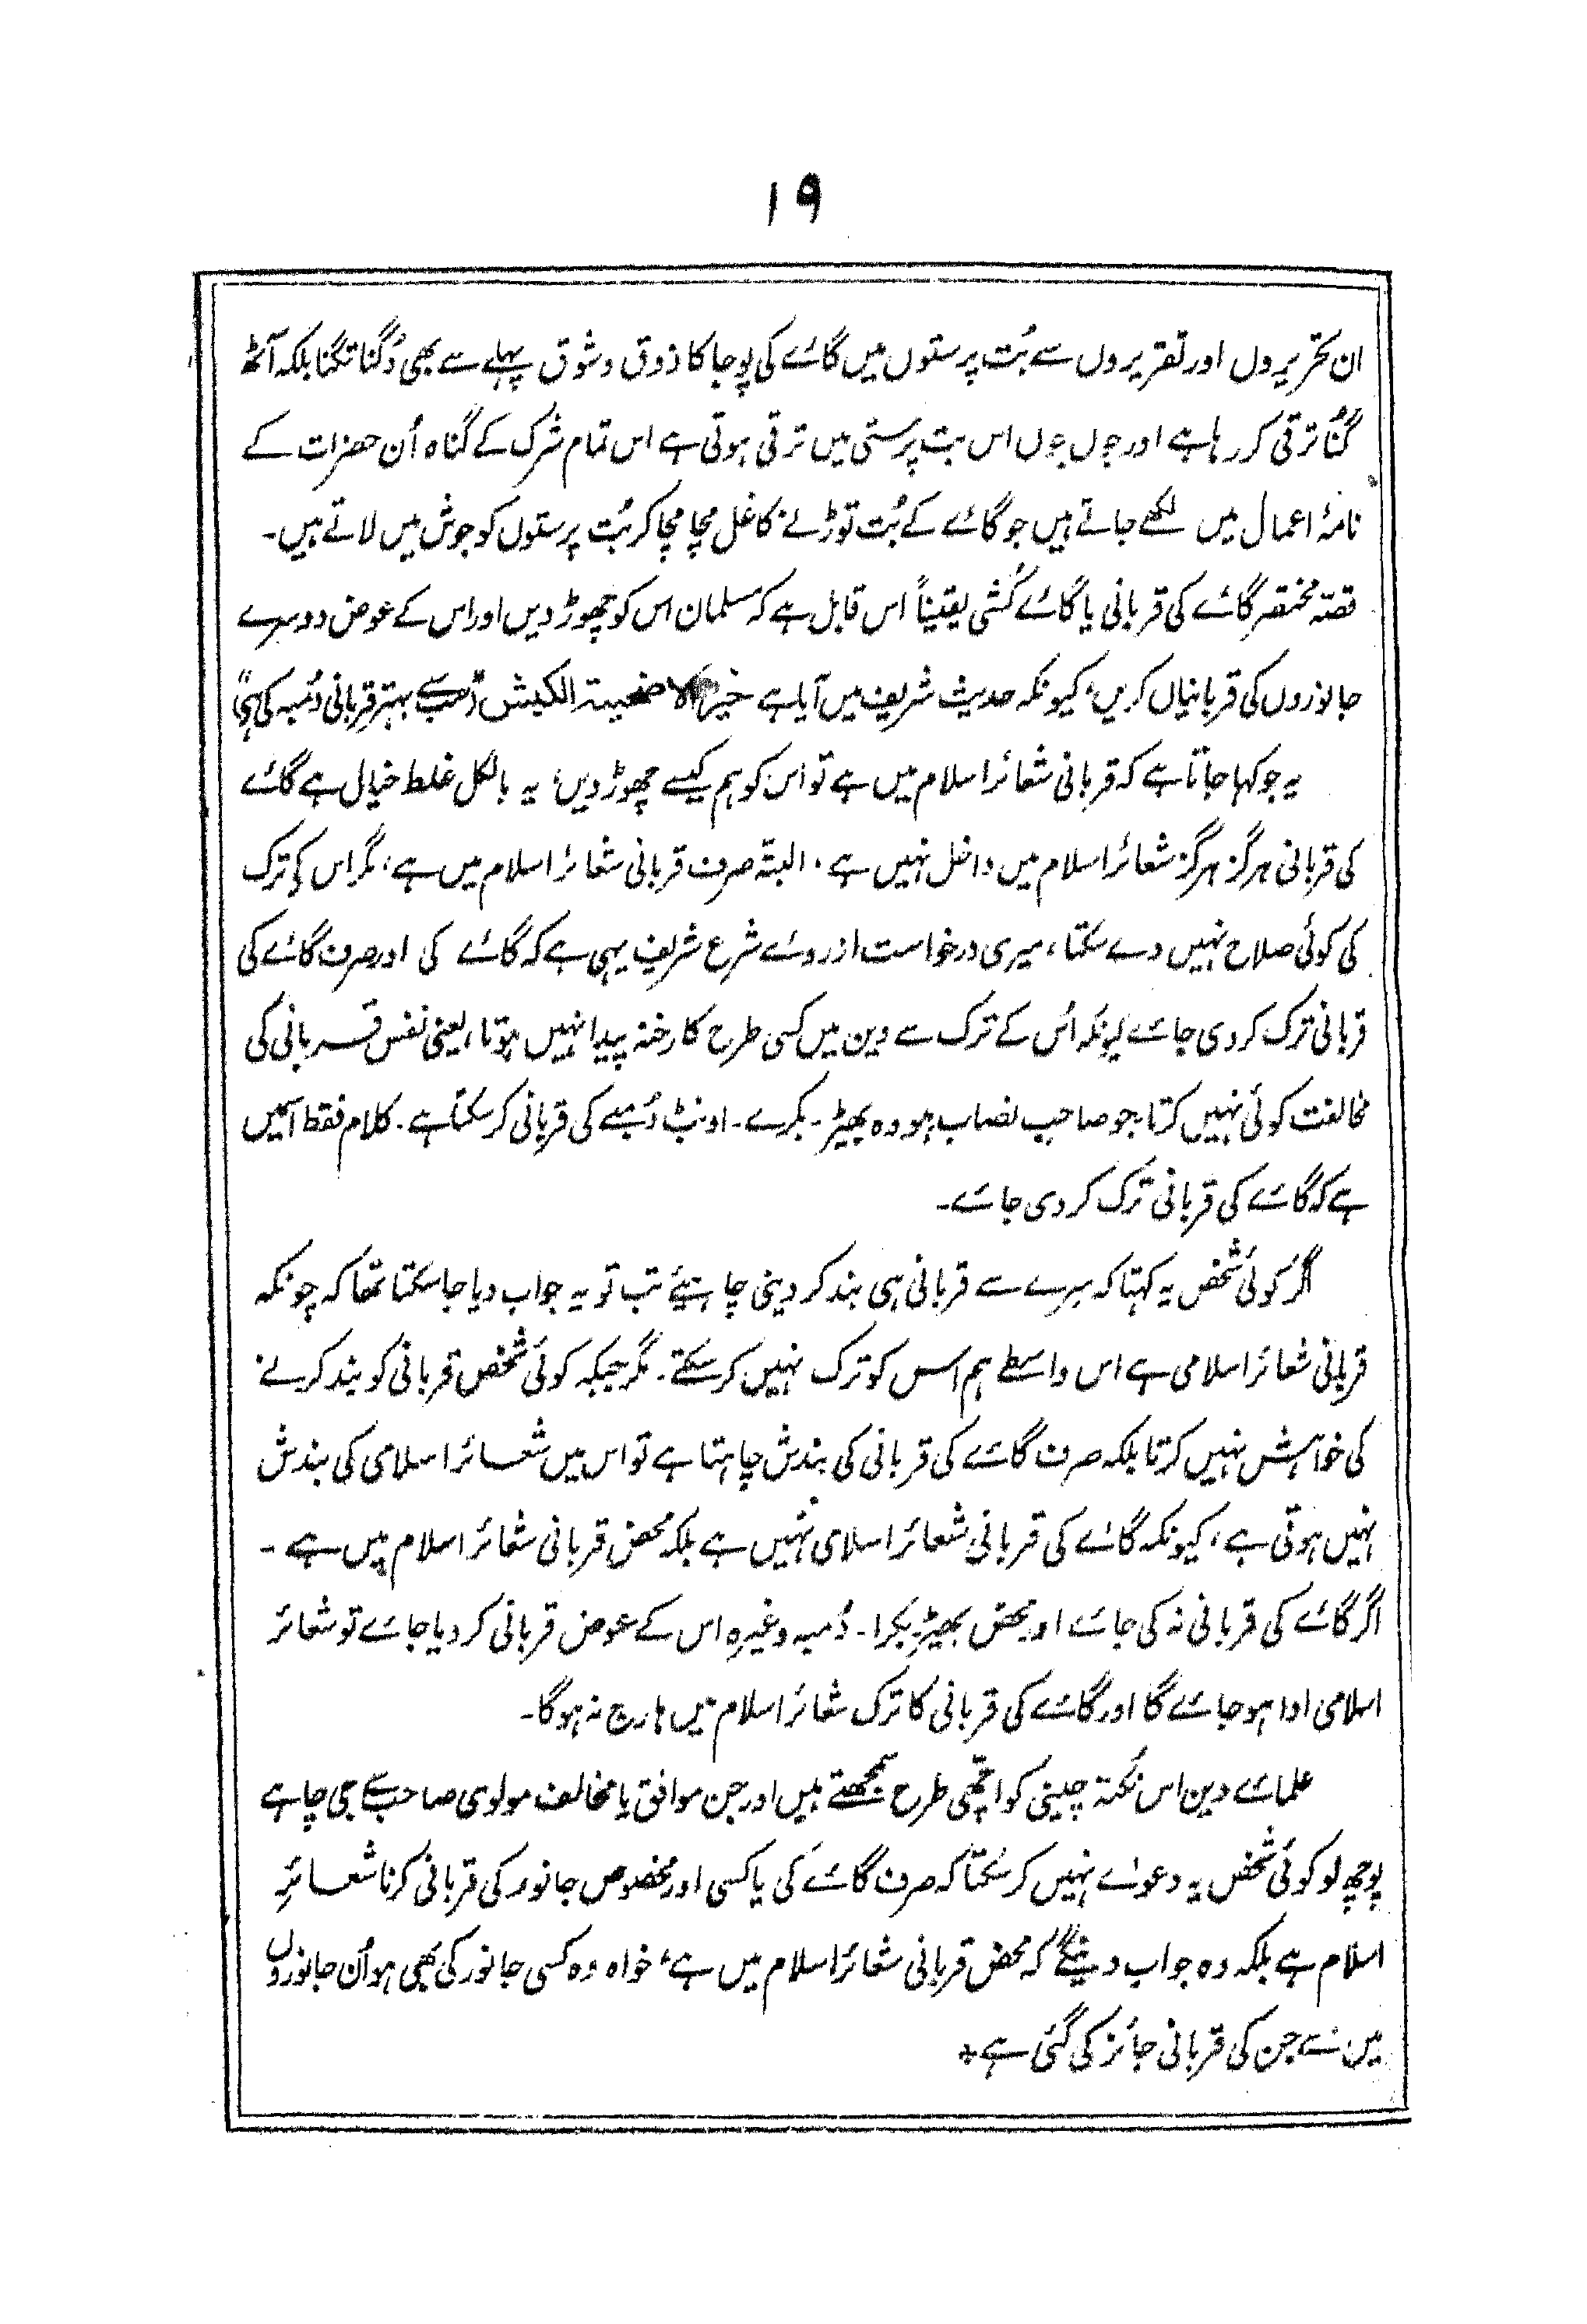 ۱۹
ان تحریروں اور تقریروں سے بُت پرستوں میں گائے کی پوجا کا ذوق و شوق پہلے سے بھی دُگنا تگنا بلکہ آٹھ
گُنا ترقی کر رہا ہے اور جوں جوں اس بت پرستی میں ترقی ہوتی ہے اس تمام شرک کے گناہ اُن حضرات کے
نامۂ اعمال میں لکھے جاتے ہیں جو گائے کے بُت توڑنے کا غل مچا مچا کر بُت پرستوں کو جوش میں لاتے ہیں۔
قصّہ مختصر گائے کی قربانی یا گائے کُشی یقیناً اس قابل ہے کہ مسلمان اس کو چھوڑ دیں اور اس کے عوض دوسرے
جانوروں کی قربانیاں کریں، کیونکہ حدیث شریف میں آیا ہے خیر الاضحیۃ الکبش (سب سے بہتر قربانی دُنبہ کی ہے)
یہ جو کہا جاتا ہے کہ قربانی شعائر اسلام میں ہے تو اس کو ہم کیسے چھوڑ دیں، یہ بالکل غلط خیال ہے گائے
کی قربانی ہرگز ہرگز شعائر اسلام میں داخل نہیں ہے۔ البتہ صرف قربانی شعائر اسلام میں ہے، مگر اس کے ترک
کی کوئی صلاح نہیں دے سکتا، میری درخواست ازروئے شرع شریف یہی ہے کہ گائے کی اور صرف گائے کی
قربانی ترک کر دی جائے کیونکہ اُس کے ترک سے دین میں کسی طرح کا رخنہ پیدا نہیں ہوتا، یعنی نفس قربانی کی
مخالفت کوئی نہیں کرتا جو صاحب نصاب ہو وہ بھیڑ۔ بکرے۔ اونٹ دُنبے کی قربانی کر سکتا ہے۔ کلام فقط اسمیں
ہے کہ گائے کی قربانی ترک کر دی جائے۔
اگر کوئی شخص یہ کہتا کہ سرے سے قربانی ہی بند کر دینی چاہیئے تب تو یہ جواب دیا جا سکتا تھا کہ چونکہ
قربانی شعائر اسلامی ہے اس واسطے ہم اس کو ترک نہیں کر سکتے۔ مگر جبکہ کوئی شخص قربانی کو بند کرنے
کی خواہش نہیں کرتا بلکہ صرف گائے کی قربانی کی بندش چاہتا ہے تو اس میں شعائر اسلامی کی بندش
نہیں ہوتی ہے، کیونکہ گائے کی قربانی شعائر اسلامی نہیں ہے بلکہ محض قربانی شعائر اسلام میں ہے۔
اگر گائے کی قربانی نہ کی جائے اور محض بھیڑ بکرا۔ دُنبہ وغیرہ اس کے عوض قربانی کر دیا جائے تو شعائر
اسلامی ادا ہو جائے گا اور گائے کی قربانی کا ترک شعائر اسلام میں ہارج نہ ہوگا۔
علمائے دین اس نکتہ چینی کو اچھی طرح سمجھتے ہیں اور جن موافق یا مخالف مولوی صاحب سے جی چاہے
پوچھ لو کوئی شخص یہ دعوےٰ نہیں کر سکتا کہ صرف گائے کی یا کسی اور مخصوص جانور کی قربانی کرنا شعائرِ
اسلام ہے بلکہ وہ جواب دینگے کہ محض قربانی شعائر اسلام میں ہے، خواہ وہ کسی جانور کی بھی ہو اُن جانوروں
میں سے جن کی قربانی جائز کی گئی ہے*